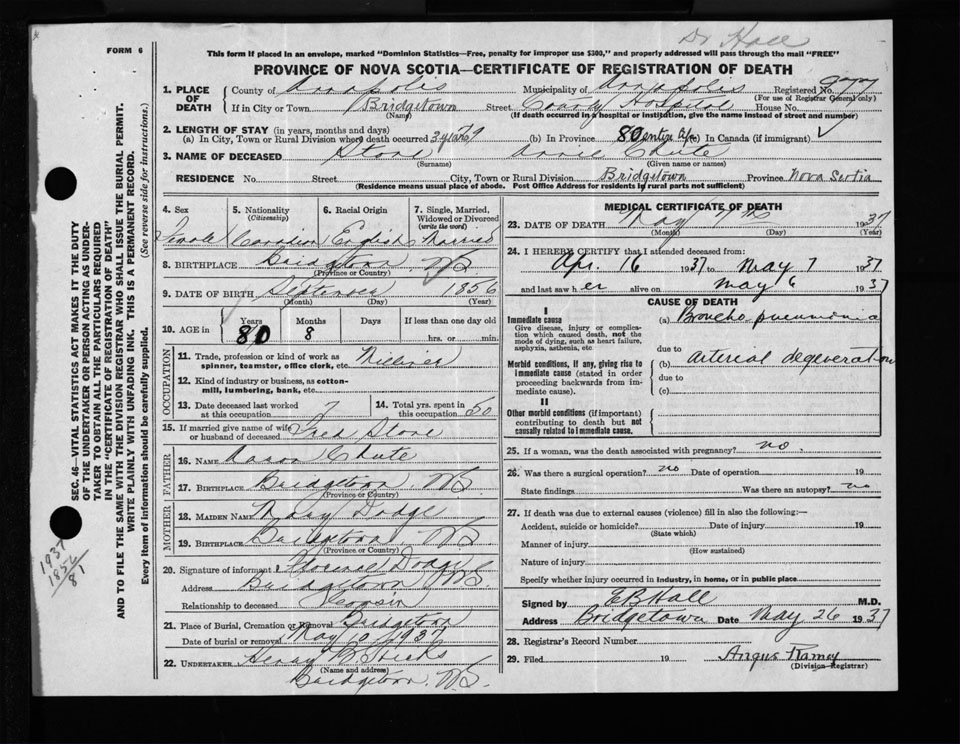 Dr Hall
FORM 6
This form if placed in an envelope, marked "Dominion Statistics—Free, penalty for improper use $300," and properly addressed will pass through the mail "FREE"
PROVINCE OF NOVA SCOTIA—CERTIFICATE OF REGISTRATION OF DEATH
1. PLACE OF DEATH
County of Annapolis Municipality of Annapolis Registered No.
(For use of Registrar General only)
If in City or Town Bridgetown Street County Hospital House No.
(Name) (If death occurred in a hospital or institution, give the name instead of street and number)
2. LENGTH OF STAY (in years, months and days)
(a) In City, Town or Rural Division where death occurred (b) In Province 80 (c) In Canada (if immigrant)
3. NAME OF DECEASED Stone Annie Chute
(Surname) (Given name or names)
RESIDENCE No. Street City, Town or Rural Division Bridgetown Province Nova Scotia
(Residence means usual place of abode. Post Office Address for residents in rural parts not sufficient)
4. Sex 5. Nationality 6. Racial Origin 7. Single, Married,
(Citizenship) Widowed or Divorced
(write the word)
Female Canadian English Married
8. BIRTHPLACE Bridgetown N.S.
(Province or Country)
9. DATE OF BIRTH September 1856
(Month) (Day) (Year)
10. AGE in Years Months Days If less than one day old
80 8 hrs. or min.
OCCUPATION
11. Trade, profession or kind of work as
spinner, teamster, office clerk, etc. Milliner
12. Kind of industry or business, as cotton-
mill, lumbering, bank, etc.
13. Date deceased last worked
at this occupation ?
14. Total yrs. spent in
this occupation 50
15. If married give name of wife
or husband of deceased Fred Stone
FATHER
16. NAME Aaron Chute
17. BIRTHPLACE Bridgetown N.S.
(Province or Country)
MOTHER
18. MAIDEN NAME Dodge
19. BIRTHPLACE Bridgetown N.S.
(Province or Country)
20. Signature of informant Florence Dodge
Address Bridgetown N.S.
Relationship to deceased Cousin
21. Place of Burial, Cremation or Removal Bridgetown
Date of burial or removal May 10 1937
22. UNDERTAKER Henry B Hicks
(Name and address)
Bridgetown N.S.
MEDICAL CERTIFICATE OF DEATH
23. DATE OF DEATH May 7th 1937
(Month) (Day) (Year)
24. I HEREBY CERTIFY that I attended deceased from:
Apr. 16 1937 to May 7 1937
and last saw her alive on May 6 1937
CAUSE OF DEATH
I
Immediate cause
Give disease, injury or complica-
tion which caused death, not the
mode of dying, such as heart failure,
asphyxia, asthenia, etc.
(a) Broncho pneumonia
due to
Morbid conditions, if any, giving rise to
immediate cause (stated in order
proceeding backwards from im-
mediate cause).
(b) arterial degeneration
due to
(c)
II
Other morbid conditions (if important)
contributing to death but not
causally related to immediate cause.
25. If a woman, was the death associated with pregnancy? no.
26. Was there a surgical operation? no Date of operation 19
State findings Was there an autopsy? no
27. If death was due to external causes (violence) fill in also the following:—
Accident, suicide or homicide? Date of injury 19
(State which)
Manner of injury
(How sustained)
Nature of injury
Specify whether injury occurred in industry, in home, or in public place
Signed by E B Hall M.D.
Address Bridgetown Date May 26 1937
28. Registrar's Record Number
29. Filed 19 Angus Ramey
(Division Registrar)
SEC. 46—VITAL STATISTICS ACT MAKES IT THE DUTY
OF THE UNDERTAKER OR PERSON ACTING AS UNDER-
TAKER TO OBTAIN ALL THE PARTICULARS REQUIRED
IN THE "CERTIFICATE OF REGISTRATION OF DEATH"
AND TO FILE THE SAME WITH THE DIVISION REGISTRAR WHO SHALL ISSUE THE BURIAL PERMIT.
WRITE PLAINLY WITH UNFADING INK. THIS IS A PERMANENT RECORD.
Every item of information should be carefully supplied. (See reverse side for instructions.)
1937
1856
81